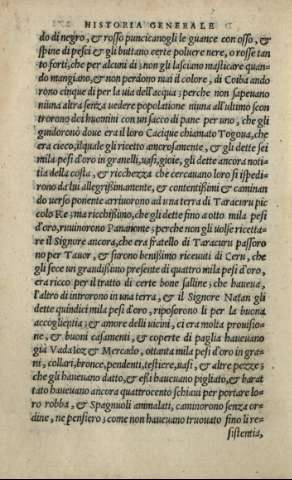 HISTORIA GENERALE
do di negro, & rosso puncicanogli le guance con osso, &
spine di pesci & gli buttano certe poluere nere, o rosse tan
to forti, che per alcuni dì, non gli lasciano masticare quan-
do mangiano, & non perdono mai il colore, di Coiba anda
rono cinque dì per la uia dell'acqua; perche non sapeuano
niuna altra senza uedere popolatione niuna all'ultimo scon
trorono doi huomini con un sacco di pane per uno, che gli
guidoronò doue era il loro Cacique chiamato Togoua, che
era cieco, il quale gli ricettò amorosamente, & gli dette sei
mila pesi d'oro in granelli, uasi, gioie, gli dette ancora noti-
tia della costa, & ricchezza che cercauano loro si ispedi-
rono da lui allegrissimamente, & contentissimi & caminan
do uerso ponente arriuorono ad una terra di Taracuru pic
colo Re; ma ricchissimo, che gli dette fino a otto mila pesi
d'oro, ruuinorono Pananome; perche non gli uolse ricetta-
re il Signore ancora, che era fratello di Taracuru passoro
no per Tauor, & furono benissimo riceuuti di Ceru, che
gli fece un grandissimo presente di quattro mila pesi d'oro,
era ricco per il tratto di certe bone salline; che haueua,
l'altro dì introrono in una terra, & il Signore Natan gli
dette quindici mila pesi d'oro, riposorono lì per la buona
accoglientia; & amore delli uicini, ci era molta prouisio-
ne, & buoni casamenti, & coperte di paglia haueuano
già Vadaioz & Mercado, ottanta mila pesi d'oro in gra-
ni, collari, bronce, pendenti, testiere, uasi, & altre pezze;
che gli haueuano datto, & essi haueuano pigliato, & barat
tato haueuano ancora quattrocento schiaui per portare lo-
ro robba, & Spagnuoli ammalati, caminorono senza or-
dine, ne pensiero; come non haueuano trouato fino lì re-
sistentia,